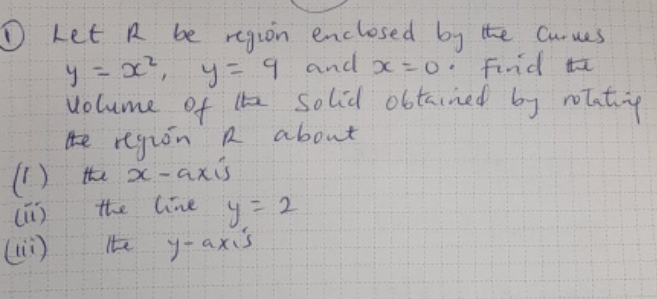 ① Let R be region enclosed by the curves
y = x², y = 9 and x = 0. Find the
Volume of the solid obtained by rotating
the region R about
(i) the x-axis
(ii) the line y = 2
(iii) the y-axis